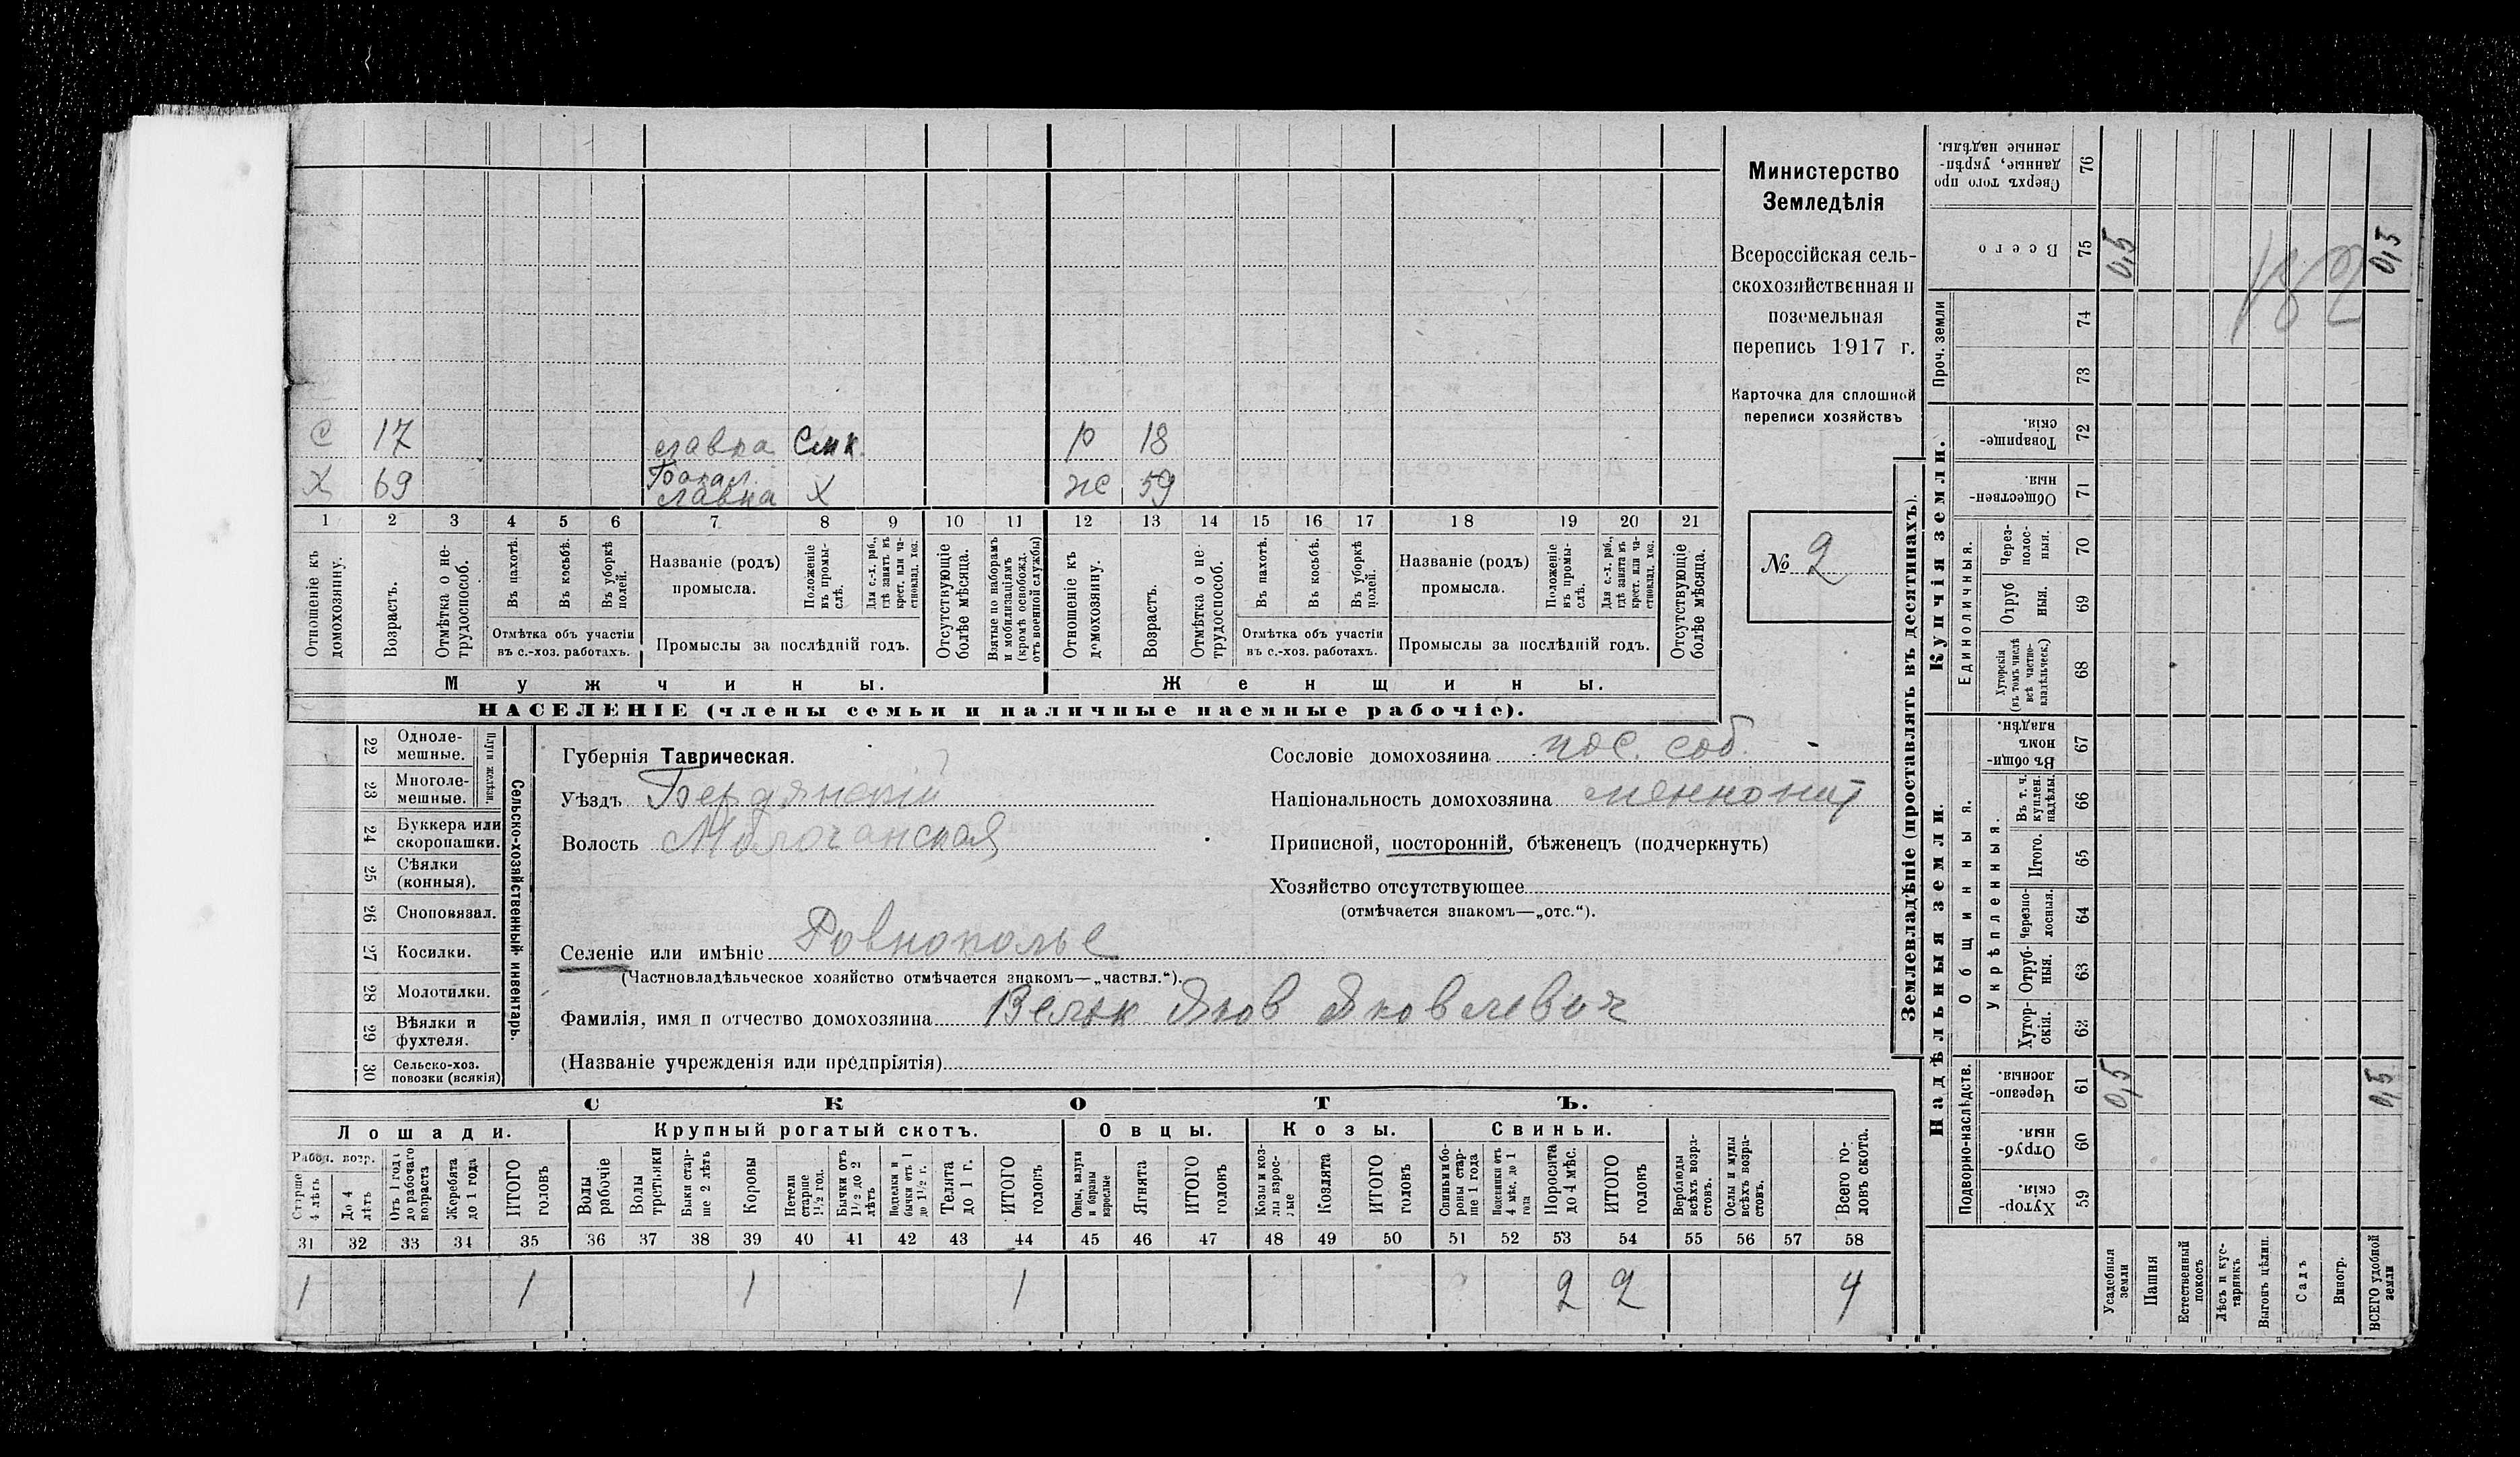 С 17 лавка Смк. р 18
Х 69 Бакал. лавка Х ж 59
1 2 3 4 5 6 7 8 9 10 11 12 13 14 15 16 17 18 19 20 21
Отношеніе къ домохозяину.
Возрастъ.
Отмѣтка о не-трудоспособ.
Въ пахотѣ.
Въ косьбѣ.
Въ уборкѣ полей.
Отмѣтка объ участіи
въ с.-хоз. работахъ.
Названіе (родъ)
промысла.
Положеніе въ промы-слѣ.
Для с.-х. раб., гдѣ занятъ въ крест. или ча-стновлад. хоз.
Промыслы за послѣдній годъ.
Отсутствующіе болѣе мѣсяца.
Взятые по наборамъ и мобилизаціямъ (кромѣ освобожд. отъ военной службы)
Отношеніе къ домохозяину.
Возрастъ.
Отмѣтка о не-трудоспособ.
Въ пахотѣ.
Въ косьбѣ.
Въ уборкѣ полей.
Отмѣтка объ участіи
въ с.-хоз. работахъ.
Названіе (родъ)
промысла.
Положеніе въ промы-слѣ.
Для с.-х. раб., гдѣ занята въ крест. или ча-стновлад. хоз.
Промыслы за послѣдній годъ.
Отсутствующіе болѣе мѣсяца.
Мужчины. Женщины.
НАСЕЛЕНІЕ (члены семьи и наличные наемные рабочіе).
Министерство
Земледѣлія
Всероссійская сель-
скохозяйственная и
поземельная
перепись 1917 г.
Карточка для сплошной
переписи хозяйствъ
№ 2
22 Одноле-
мешные.
23 Многоле-
мешные.
Плуги желѣзн.
24 Буккера или
скоропашки.
25 Сѣялки
(конныя).
26 Сноповязал.
27 Косилки.
28 Молотилки.
29 Вѣялки и
фухтеля.
30 Сельско-хоз.
повозки (всякія)
Сельско-хозяйственный инвентарь.
Губернія Таврическая.
Уѣздъ Бердянскій
Волость Молочанская
Селеніе или имѣніе Ровнополье
(Частновладѣльческое хозяйство отмѣчается знакомъ—„частвл.“).
Фамилія, имя и отчество домохозяина Вельк Яков Яковлевич
(Названіе учрежденія или предпріятія)
Сословіе домохозяина пос. соб.
Національность домохозяина меннонит
Приписной, посторонній, бѣженецъ (подчеркнуть)
Хозяйство отсутствующее
(отмѣчается знакомъ—„отс.“).
СКОТЪ.
Лошади. Крупный рогатый скотъ. Овцы. Козы. Свиньи.
Рабоч. возр.
Старше 4 лѣтъ
До 4 лѣтъ
Отъ 1 года до рабочаго возраста
Жеребята до 1 года
ИТОГО головъ
Волы рабочіе
Волы третьяки
Быки стар-ше 2 лѣтъ
Коровы
Нетели старше 1½ год.
Бычки отъ 1½ до 2 лѣтъ
Бычки отъ 1 до 1½ г.
Телята до 1 г.
ИТОГО головъ
Овцы, валухи и бараны взрослые
Ягнята
ИТОГО головъ
Козы и коз-лы взрос-лые
Козлята
ИТОГО головъ
Свиньи и бо-ровы стар-ше 1 года
Подсвинки отъ 4 мѣс. до 1 года
Поросята до 4 мѣс.
ИТОГО головъ
Верблюды всѣхъ возра-стовъ.
Ослы и мулы всѣхъ возра-стовъ.
Всего го-ловъ скота.
31 32 33 34 35 36 37 38 39 40 41 42 43 44 45 46 47 48 49 50 51 52 53 54 55 56 57 58
1 1 1 1 2 2 4
Землевладѣніе (проставлять въ десятинахъ).
Надѣльныя земли. Купчія земли. Проч. земли
Подворно-наслѣдств. Общинныя. Единоличныя.
Укрѣпленныя.
Хутор-скія. 59
Отруб-ныя. 60
Черезпо-лосныя. 61
Хутор-скія. 62
Отруб-ныя. 63
Черезпо-лосныя. 64
Итого. 65
Въ т. ч. куплен. надѣлы. 66
Въ общин-номъ владѣн. 67
Хуторскія (въ томъ числѣ всѣ частно-владѣльческ.) 68
Отруб ныя. 69
Через-полос-ныя. 70
Обществен-ныя. 71
Товарище-скія. 72
73
74
Всего 75
Сверхъ того про данные, укрѣп-ленные надѣлы. 76
Усадебныя земли 0,5 0,5
Пашня
Естественный покосъ
Лѣсъ и кус-тарникъ
Выгонъ цѣлин.
Садъ
Виногр.
ВСЕГО удобной земли 0,5 0,5
182